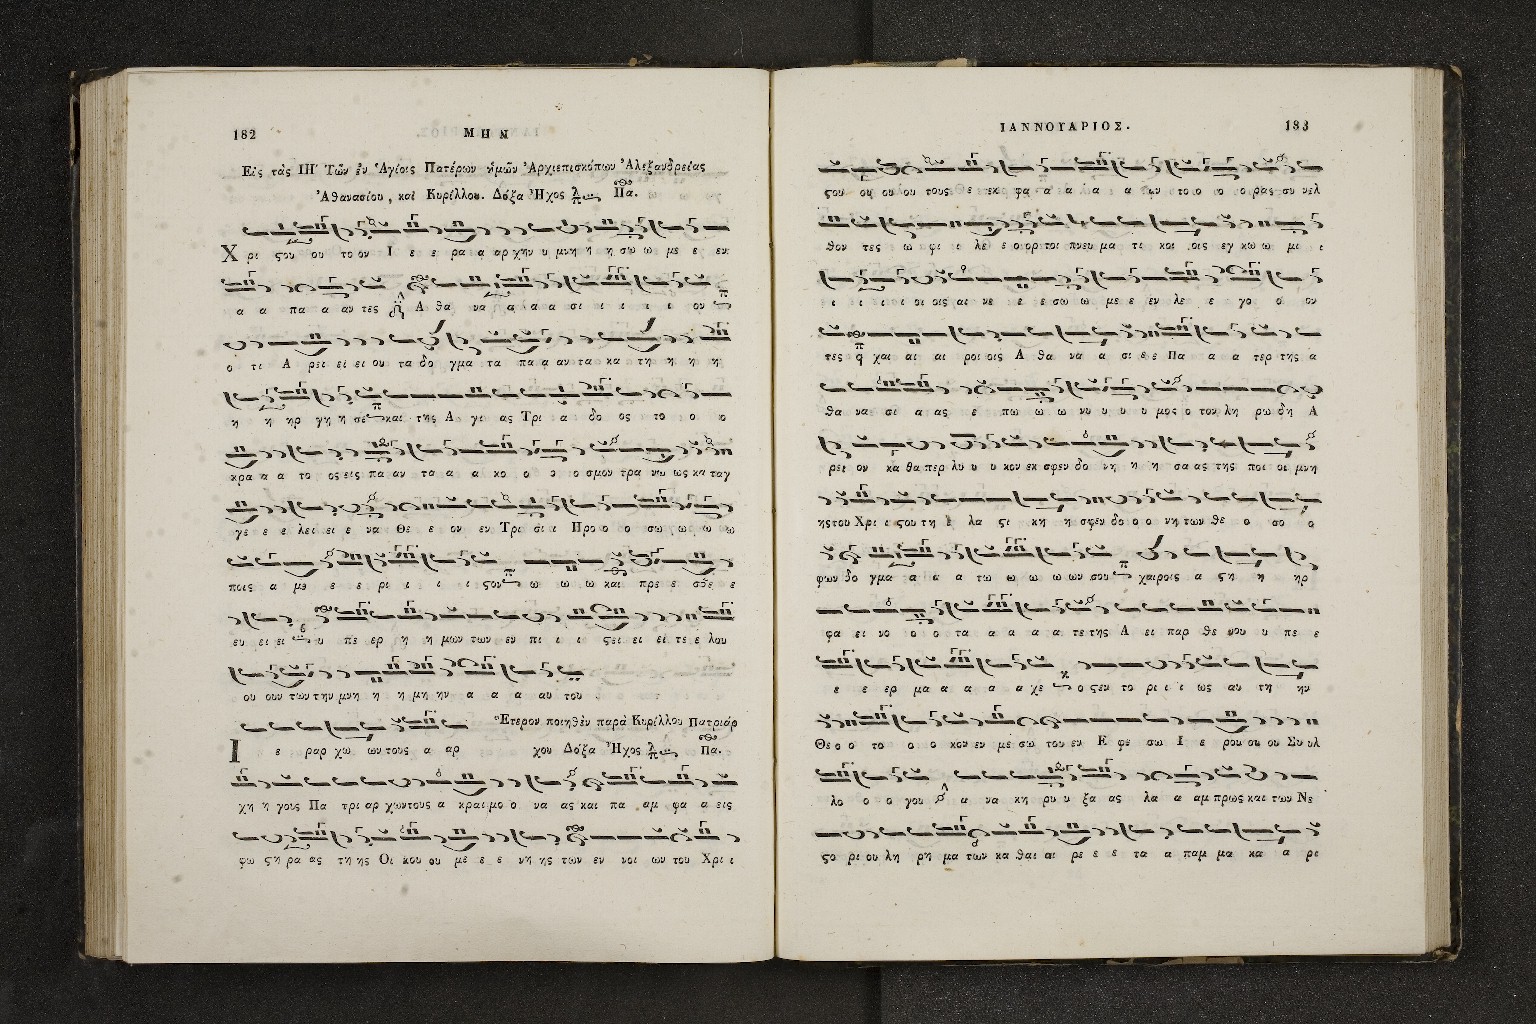 182
ΜΗΝ
Εἰς τὰς ΙΗ' Τῶν ἐν Ἁγίοις Πατέρων ἡμῶν Ἀρχιεπισκόπων Ἀλεξανδρείας
Ἀθανασίου, καὶ Κυρίλλου. Δόξα Ἦχος Πα.
Χ ρι ςου ου το ον Ι ε ε ρα α αρ χην υ μνη η η σω ω με ε εν
α α πα α αν τες Α θα να α α α σι ι ι ι ι ον
ο τι Α ρει ει ει ου τα δο γμα τα πα α αν τα κα τη η η η
η η ηρ γη η σε και της Α γι ας Τρι α δο ος το ο ο
κρα α α το ος εις πα αν τα α α κο ο ο ο σμον τρα νω ως κα ταγ
γε ε ε λει ει ε να Θε ε ον εν Τρι σι ι Προ ο ο σω ω ω ω
ποις α με ε ε ρι ι ι ι ςον ω ω ω και πρε ε σβε ε
ευ ει ει υ πε ερ η η μων των εν πι ι ι ςει ει ει τε ε λου
ου ουν των την μνη η η μη ην α α α αυ του
Ἕτερον ποιηθὲν παρὰ Κυρίλλου Πατριάρ
Ι ε ραρ χω ων τους α αρ χου Δόξα Ἦχος Πα.
χη η γους Πα τρι αρ χων τους α κραι μο ο να ας και πα αμ φα α εις
φω ςη ρα ας τη ης Οι κου ου με ε ε νη ης των εν νοι ων του Χρι ι
ΙΑΝΝΟΥΑΡΙΟΣ.
183
ςου ου ου ου τους ε εκ φα α α α α ων το ο ο ο ρας συ νελ
θον τες ω φι ι λε ε ο ορ τοι πνευ μα τι κοι οις εγ κω ω μι ι
ι ι ι ι οι οις αι νε ε ε σω ω με ε εν λε ε γο ο ον
τες χαι αι αι ροι οις Α θα να α σι ε ε Πα α α τερ της α
θα να σι α ας ε πω ω ω νυ υ υ υ μος ο τον λη ρω δη Α
ρει ον κα θα περ λυ υ υ κον εκ σφεν δο νη η η σα ας της ποι οι μνη
ης του Χρι ι ςου τη ε λα ςι κη η σφεν δο ο ο νη των θε ο σο ο
φων δο γμα α α α τω ω ω ω ων σου χαιροις α ςη η ηρ
φα ει νο ο ο τα α α α α τε της Α ει παρ θε νου υ πε ε
ε ε ερ μα α α α α χε ο ςεν το ρι ι ι ως αυ τη ην
Θε ο ο το ο ο κον εν με σω του εν Ε φε σω Ι ε ρου ου ου Συ υλ
λο ο ο ο γου α να κη ρυ υ ξα ας λα α αμ πρως και των Νε
ςο ρι ου λη ρη μα των κα θαι αι ρε ε ε τα α παμ μα κα α ρι